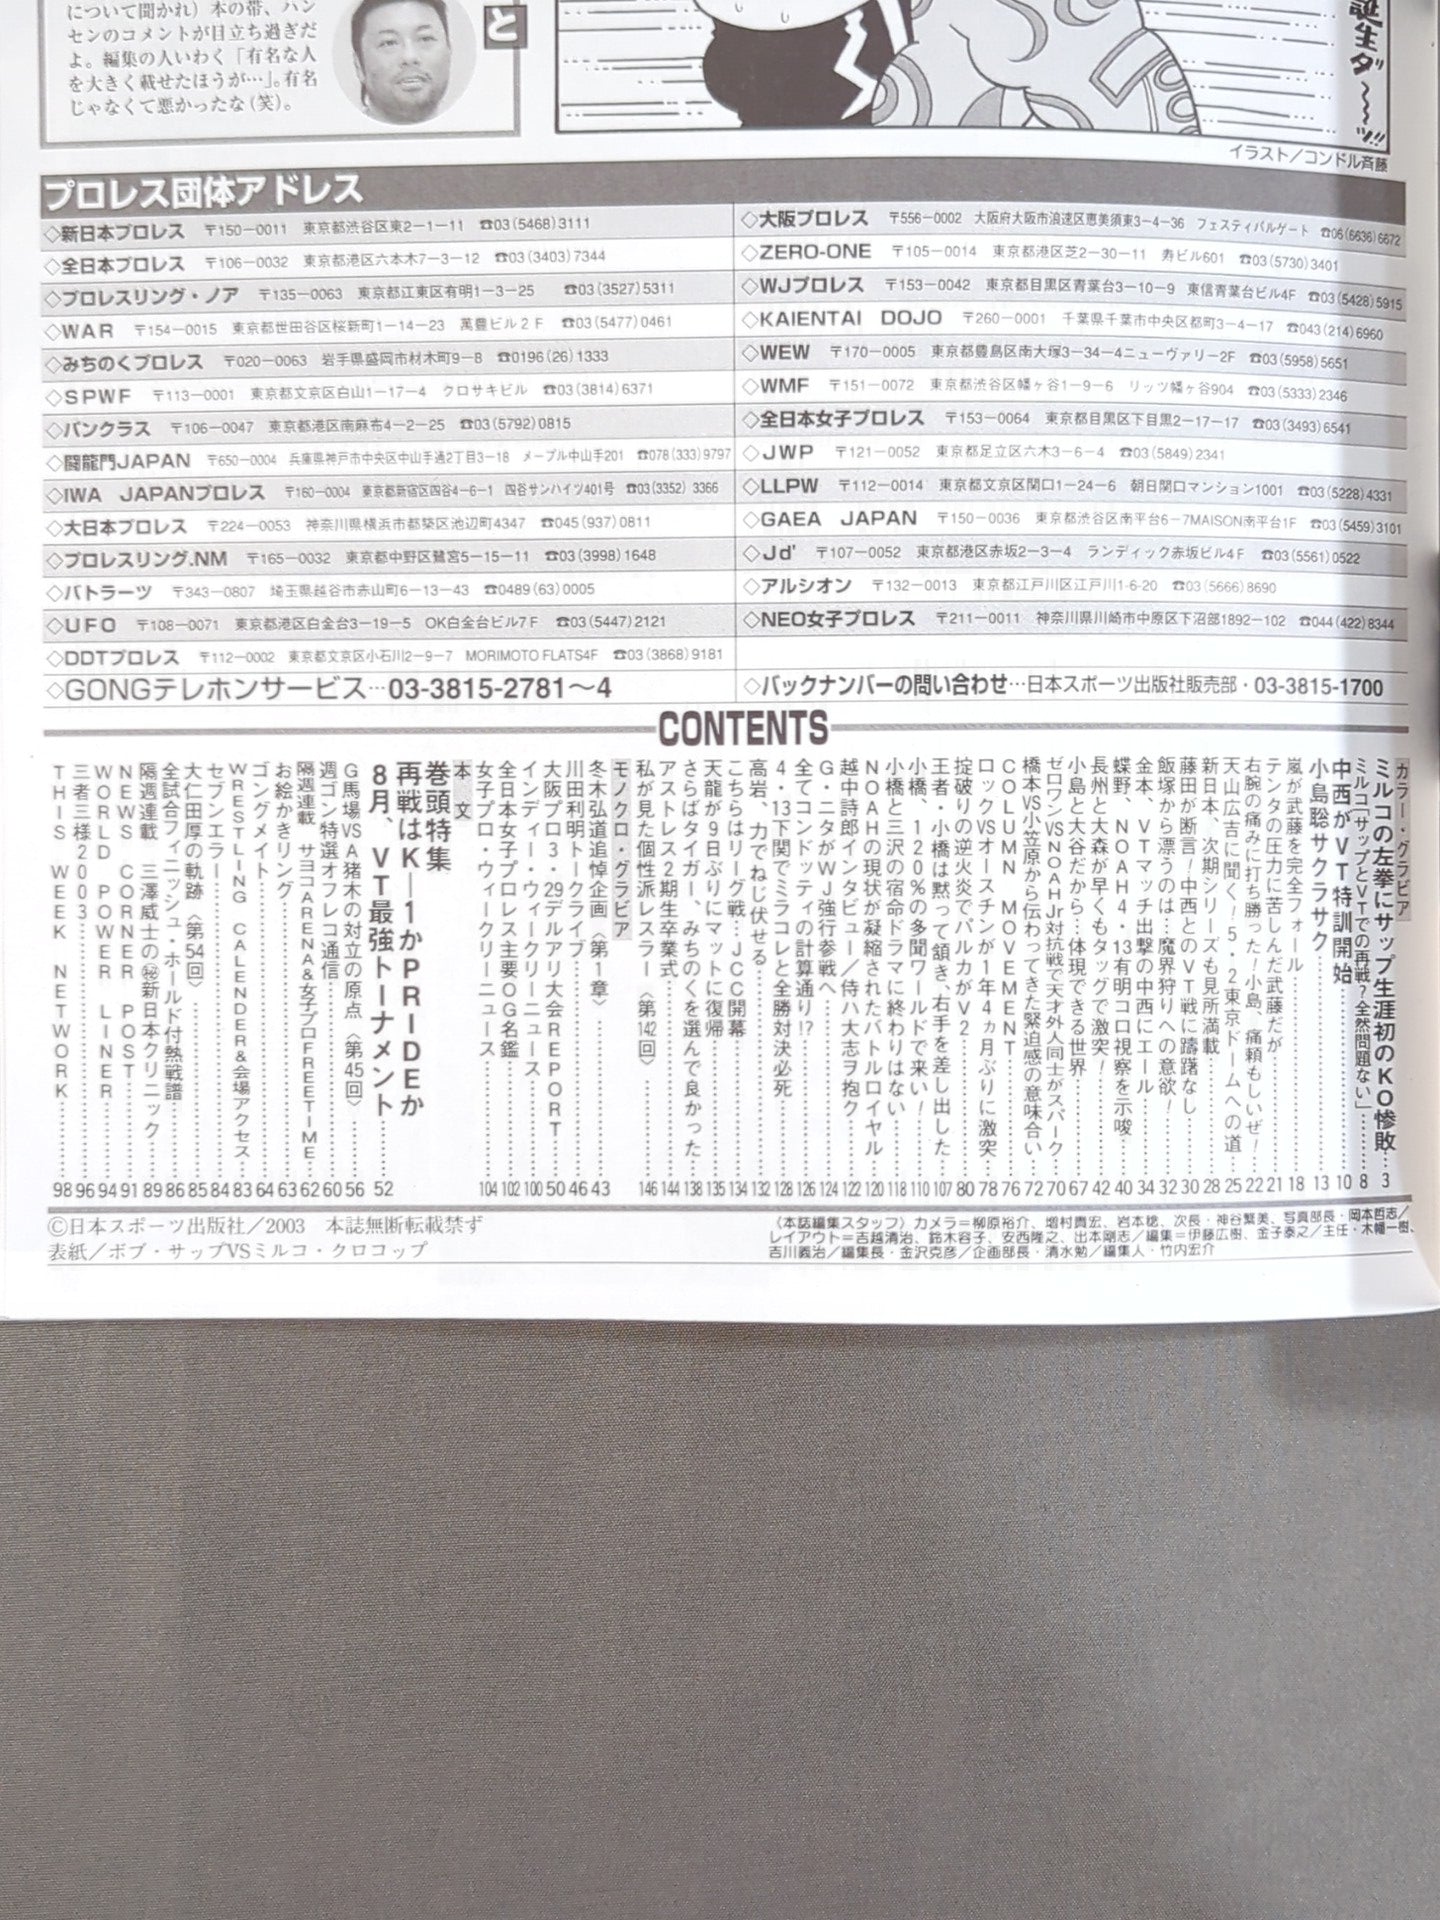 について聞かれ）本の帯、ハン
センのコメントが目立ち過ぎだ
よ。編集の人いわく「有名な人
を大きく載せたほうが…」。有名
じゃなくて悪かったな（笑）。
と
誕生ダ〜〜ッ!!
イラスト／コンドル斉藤
プロレス団体アドレス
◇新日本プロレス 〒150−0011 東京都渋谷区東2−1−11 ☎03(5468)3111
◇全日本プロレス 〒106−0032 東京都港区六本木7−3−12 ☎03(3403)7344
◇プロレスリング・ノア 〒135−0063 東京都江東区有明1−3−25 ☎03(3527)5311
◇WAR 〒154−0015 東京都世田谷区桜新町1−14−23 萬豊ビル2F ☎03(5477)0461
◇みちのくプロレス 〒020−0063 岩手県盛岡市材木町9−8 ☎0196(26)1333
◇SPWF 〒113−0001 東京都文京区白山1−17−4 クロサキビル ☎03(3814)6371
◇パンクラス 〒106−0047 東京都港区南麻布4−2−25 ☎03(5792)0815
◇闘龍門JAPAN 〒650−0004 兵庫県神戸市中央区中山手通2丁目3−18 メープル中山手201 ☎078(333)9797
◇IWA JAPANプロレス 〒160−0004 東京都新宿区四谷4−6−1 四谷サンハイツ401号 ☎03(3352)3366
◇大日本プロレス 〒224−0053 神奈川県横浜市都築区池辺町4347 ☎045(937)0811
◇プロレスリング.NM 〒165−0032 東京都中野区鷺宮5−15−11 ☎03(3998)1648
◇バトラーツ 〒343−0807 埼玉県越谷市赤山町6−13−43 ☎0489(63)0005
◇UFO 〒108−0071 東京都港区白金台3−19−5 OK白金台ビル7F ☎03(5447)2121
◇DDTプロレス 〒112−0002 東京都文京区小石川2−9−7 MORIMOTO FLATS4F ☎03(3868)9181
◇GONGテレホンサービス…03-3815-2781〜4
◇大阪プロレス 〒556−0002 大阪府大阪市浪速区恵美須東3−4−36 フェスティバルゲート ☎06(6636)6672
◇ZERO-ONE 〒105−0014 東京都港区芝2−30−11 寿ビル601 ☎03(5730)3401
◇WJプロレス 〒153−0042 東京都目黒区青葉台3−10−9 東信青葉台ビル4F ☎03(5428)5915
◇KAIENTAI DOJO 〒260−0001 千葉県千葉市中央区都町3−4−17 ☎043(214)6960
◇WEW 〒170−0005 東京都豊島区南大塚3−34−4ニューヴァリー2F ☎03(5958)5651
◇WMF 〒151−0072 東京都渋谷区幡ヶ谷1−9−6 リッツ幡ヶ谷904 ☎03(5333)2346
◇全日本女子プロレス 〒153−0064 東京都目黒区下目黒2−17−17 ☎03(3493)6541
◇JWP 〒121−0052 東京都足立区六木3−6−4 ☎03(5849)2341
◇LLPW 〒112−0014 東京都文京区関口1−24−6 朝日関口マンション1001 ☎03(5228)4331
◇GAEA JAPAN 〒150−0036 東京都渋谷区南平台6−7MAISON南平台1F ☎03(5459)3101
◇Jd' 〒107−0052 東京都港区赤坂2−3−4 ランディック赤坂ビル4F ☎03(5561)0522
◇アルシオン 〒132−0013 東京都江戸川区江戸川1-6-20 ☎03(5666)8690
◇NEO女子プロレス 〒211−0011 神奈川県川崎市中原区下沼部1892−102 ☎044(422)8344
◇バックナンバーの問い合わせ…日本スポーツ出版社販売部・03-3815-1700
CONTENTS
カラー・グラビア
ミルコの左拳にサップ生涯初のKO惨敗…3
ミルコ｢サップとVTでの再戦？全然問題ない」…8
中西がVT特訓開始…10
小島聡サクラサク…13
嵐が武藤を完全フォール…18
テンタの圧力に苦しんだ武藤だが…21
右腕の痛みに打ち勝った！小島、痛頼もしいぜ！…22
天山広吉に聞く！5・2東京ドームへの道…25
新日本、次期シリーズも見所満載…28
藤田が断言！中西とのVT戦に躊躇なし…30
飯塚から漂うのは…魔界狩りへの意欲！…32
金本、VTマッチ出撃の中西にエール…34
蝶野、NOAH4・13有明コロ視察を示唆…40
長州と大森が早くもタッグで激突！…42
小島と大谷だから…体現できる世界…67
ゼロワンVSNOAHJr対抗戦で天才外人同士がスパーク…70
橋本VS小笠原から伝わってきた緊迫感の意味合い…72
COLUMN MOVEMENT…76
ロックVSオースチンが1年4ヵ月ぶりに激突…78
掟破りの逆火炎でパルカがV2…80
王者・小橋は黙って頷き、右手を差し出した…107
小橋、120%の多聞ワールドで来い！…110
小橋と三沢の宿命ドラマに終わりはない…118
NOAHの現状が凝縮されたバトルロイヤル…120
越中詩郎インタビュー／侍ハ大志ヲ抱ク…122
G・ニタがWJ強行参戦へ…124
全てコンドッティの計算通り!?…126
4・13下関でミラコレと全勝対決必死…128
高岩、力でねじ伏せる…132
こちらはリーグ戦…JCC開幕…134
天龍が9日ぶりにマットに復帰…135
さらばタイガー、みちのくを選んで良かった…138
アストレス2期生卒業式…144
私が見た個性派レスラー〈第142回〉…146
モノクロ・グラビア
冬木弘道追悼企画〈第1章〉…43
川田利明トークライブ…46
大阪プロ3・29デルアリ大会REPORT…50
インディー・ウィークリーニュース…100
全日本女子プロレス主要OG名鑑…102
女子プロ・ウィークリーニュース…104
本 文
巻頭特集
再戦はK−1かPRIDEか
8月、VT最強トーナメント…52
G馬場VSA猪木の対立の原点〈第45回〉…56
週ゴン特選オフレコ通信…60
隔週連載 サヨコARENA&女子プロFREETIME…62
お絵かきリング…63
ゴングメイト…64
WRESTLING CALENDER&会場アクセス…83
セブンエラー…84
大仁田厚の軌跡〈第54回〉…85
全試合フィニッシュ・ホールド付熱戦譜…86
隔週連載 三澤威士の㊙新日本クリニック…89
NEWS CORNER POST…91
WORLD POWER LINER…94
三者三様2003…96
THIS WEEK NETWORK…98
©日本スポーツ出版社／2003 本誌無断転載禁ず
表紙／ボブ・サップVSミルコ・クロコップ
〈本誌編集スタッフ〉カメラ＝柳原裕介、増村貴宏、岩本稔、次長・神谷繁美、写真部長・岡本哲志／
レイアウト＝吉越清治、鈴木容子、安西隆之、出本剛志／編集＝伊藤広樹、金子泰之／主任・木幡一樹、
吉川義治／編集長・金沢克彦／企画部長・清水勉／編集人・竹内宏介